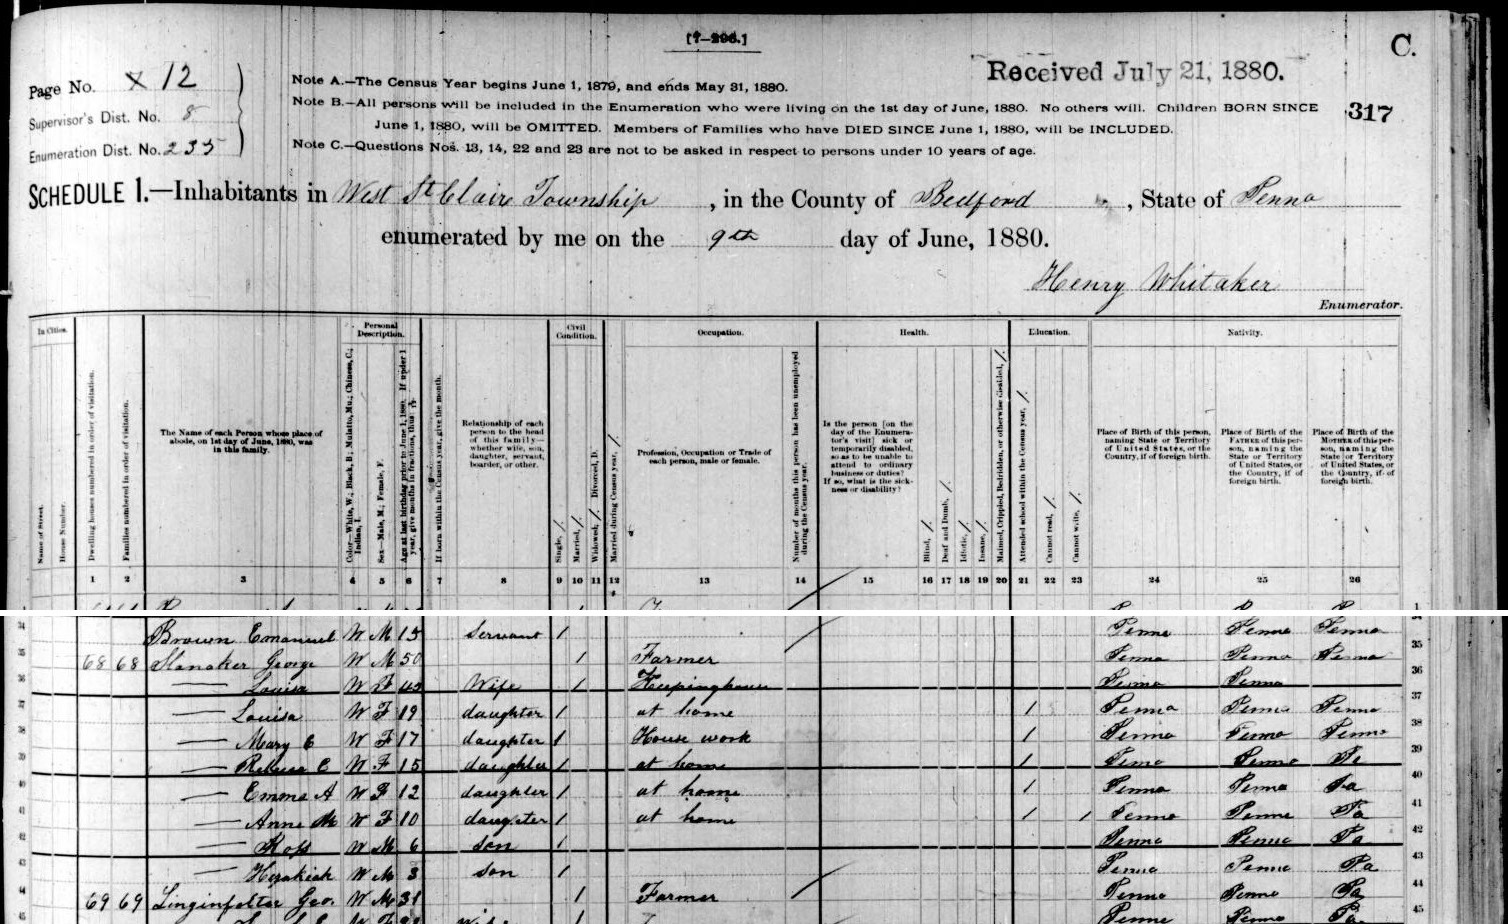 [7-296.]
C.
Page No. X 12
Supervisor's Dist. No. 8
Enumeration Dist. No. 235
Note A.—The Census Year begins June 1, 1879, and ends May 31, 1880.
Received July 21, 1880.
Note B.—All persons will be included in the Enumeration who were living on the 1st day of June, 1880. No others will. Children BORN SINCE
June 1, 1880, will be OMITTED. Members of Families who have DIED SINCE June 1, 1880, will be INCLUDED.
317
Note C.—Questions Nos. 13, 14, 22 and 23 are not to be asked in respect to persons under 10 years of age.
SCHEDULE 1.—Inhabitants in West St Clair Township, in the County of Bedford, State of Penna
enumerated by me on the 9th day of June, 1880.
Henry Whitaker
Enumerator.
In Cities.
Name of Street.
House Number.
Dwelling houses numbered in order of visitation.
Families numbered in order of visitation.
The Name of each Person whose place of
abode, on 1st day of June, 1880, was
in this family.
Personal
Description.
Color—White, W.; Black, B.; Mulatto, Mu.; Chinese, C.;
Indian, I.
Sex—Male, M.; Female, F.
Age at last birthday prior to June 1, 1880. If under 1
year, give months in fractions, thus:
If born within the Census year, give the month.
Relationship of each
person to the head
of this family—
whether wife, son,
daughter, servant,
boarder, or other.
Civil
Condition.
Single, /.
Married, /.
Widowed, /. Divorced, D.
Married during Census year, /.
Occupation.
Profession, Occupation or Trade of
each person, male or female.
Number of months this person has been unemployed
during the Census year.
Health.
Is the person [on the
day of the Enumera-
tor's visit] sick or
temporarily disabled,
so as to be unable to
attend to ordinary
business or duties?
If so, what is the sick-
ness or disability?
Blind, /.
Deaf and Dumb, /.
Idiotic, /.
Insane, /.
Maimed, Crippled, Bedridden, or otherwise disabled, /.
Education.
Attended school within the Census year, /.
Cannot read, /.
Cannot write, /.
Nativity.
Place of Birth of this person,
naming State or Territory
of United States, or the
Country, if of foreign birth.
Place of Birth of the
FATHER of this per-
son, naming the
State or Territory
of United States, or
the Country, if of
foreign birth.
Place of Birth of the
MOTHER of this per-
son, naming the
State or Territory
of United States, or
the Country, if of
foreign birth.
1 2 3 4 5 6 7 8 9 10 11 12 13 14 15 16 17 18 19 20 21 22 23 24 25 26
34 Brown Emanuel W M 15 Servant / Penna Penna Penna
35 68 68 Slonaker George W M 50 / Farmer Penna Penna Penna 35
36 — Louisa W F 43 Wife / Keepinghouse Penna Penna 36
37 — Louisa W F 19 daughter / at home / Penna Penna Penna 37
38 — Mary E W F 17 daughter / House work / Penna Penna Penna 38
39 — W F 15 daughter / at home / Penna Penna Pa 39
40 — Emma A W F 12 daughter / at home / Penna Penna Pa 40
41 — Anne M W F 10 daughter / at home / / Penna Penna Pa 41
42 — Ross W M 6 son / Penna Penna Pa 42
43 — Hezekiah W M 3 son / Penna Penna Pa 43
44 69 69 Linginfelter Geo. W M 31 / Farmer Penna Penna Pa 44
45